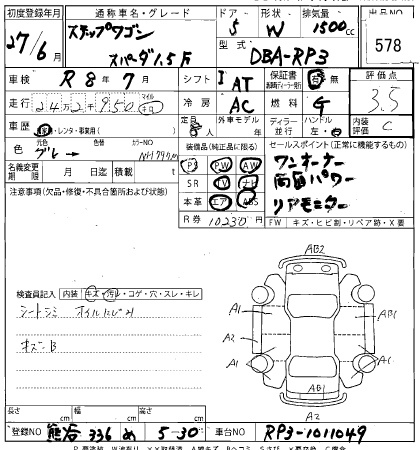 初度登録年月 通称車名・グレード ドア 形状 排気量 出品NO
27/6月 ステップワゴン スパーダ1.5 5 W 1500cc 578
型式 DBA-RP3
車検 R8年7月 シフト I AT 保証書 有 無 評価点
走行 マイル キロ 冷房 AC 燃料 G 3.5
車歴 自家用・レンタ・事業用( ) 定員 8人 外車モデル ディーラー 並行 ハンドル 左・右 内装評価 C
元色 グレー→ 色替 カラーNO 装備品(純正品に限る) セールスポイント(正常に機能するもの)
名義変更期限 月 日迄 積載 t PS PW AW ワンオーナー
注意事項(欠品・修復・不具合箇所および状態) SR TV ナビ 両面パワー
本革 エア ABS リアモニター
R券 10230円 FW キズ・ヒビ割・リペア跡・X要
検査員記入 内装 キズ・汚レ・コゲ・穴・スレ・キレ
シートシミ オイルにじみ
キズ B
AB2
A1 AB1
A2
A1 A1
AB1
A2
長さ cm 幅 cm 高さ cm
登録NO 熊谷 336 め 5-30 車台NO RP3-1011049